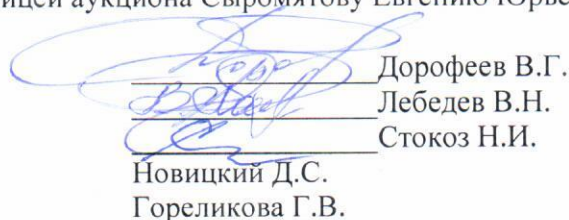 ицей аукциона Сыромятову Евгению Юрье
Дорофеев В.Г.
Лебедев В.Н.
Стокоз Н.И.
Новицкий Д.С.
Гореликова Г.В.